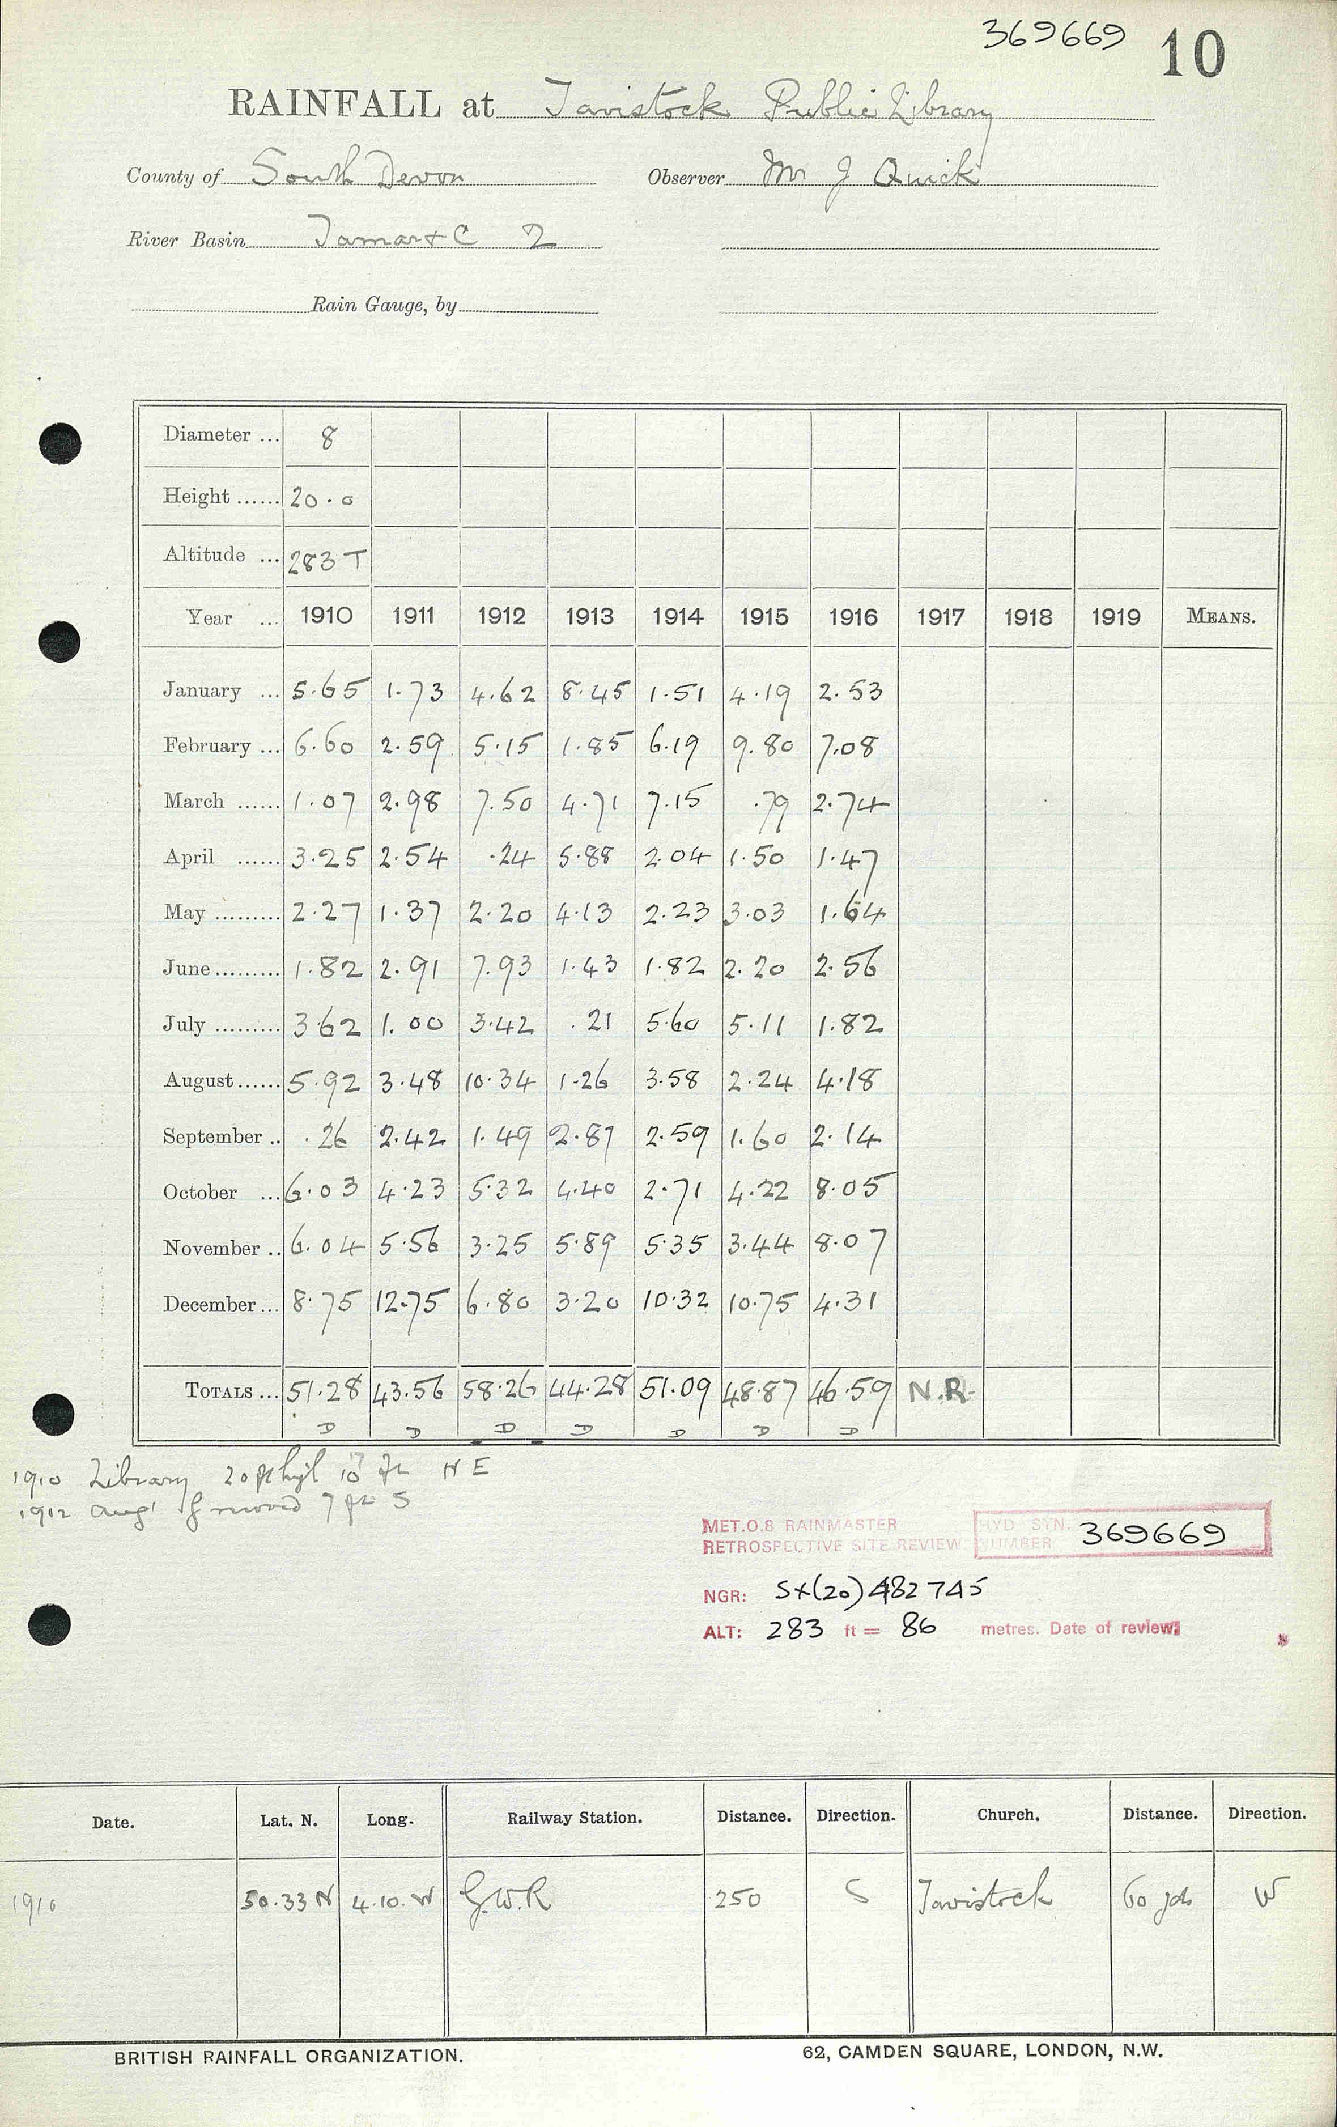 369669 10
RAINFALL at Tavistock Public Library
County of South Devon Observer Mr J Quick
River Basin Tamar & C 2
Rain Gauge, by
Diameter ... 8
Height ...... 20.0
Altitude ... 283 T
Year ... 1910 1911 1912 1913 1914 1915 1916 1917 1918 1919 MEANS.
January ... 5.65 1.73 4.62 8.45 1.51 4.19 2.53
February ... 6.60 2.59 5.15 1.85 6.19 9.80 7.08
March ...... 1.07 2.98 7.50 4.71 7.15 .79 2.74
April ...... 3.25 2.54 .24 5.88 2.04 1.50 1.47
May ......... 2.27 1.37 2.20 4.13 2.23 3.03 1.64
June ......... 1.82 2.91 7.93 1.43 1.82 2.20 2.56
July ......... 3.62 1.00 3.42 .21 5.60 5.11 1.82
August ...... 5.92 3.48 10.34 1.26 3.58 2.24 4.18
September .. .26 2.42 1.49 2.87 2.59 1.60 2.14
October ... 6.03 4.23 5.32 4.40 2.71 4.22 8.05
November .. 6.04 5.56 3.25 5.89 5.35 3.44 8.07
December ... 8.75 12.75 6.80 3.20 10.32 10.75 4.31
TOTALS ... 51.28 43.56 58.26 44.28 51.09 48.87 46.59 N.R.
D D D D D D D
1910 Library 20 ft high 10 ft N E
1912 Aug moved 7 ft S
MET.O.8 RAINMASTER HYD. SYN. 369669
RETROSPECTIVE SITE REVIEW NUMBER
NGR: SX(20) 482 745
ALT: 283 ft = 86 metres. Date of review:
Date. Lat. N. Long. Railway Station. Distance. Direction. Church. Distance. Direction.
1910 50.33 N 4.10. W G.W.R 250 S Tavistock 60 yds W
BRITISH RAINFALL ORGANIZATION. 62, CAMDEN SQUARE, LONDON, N.W.